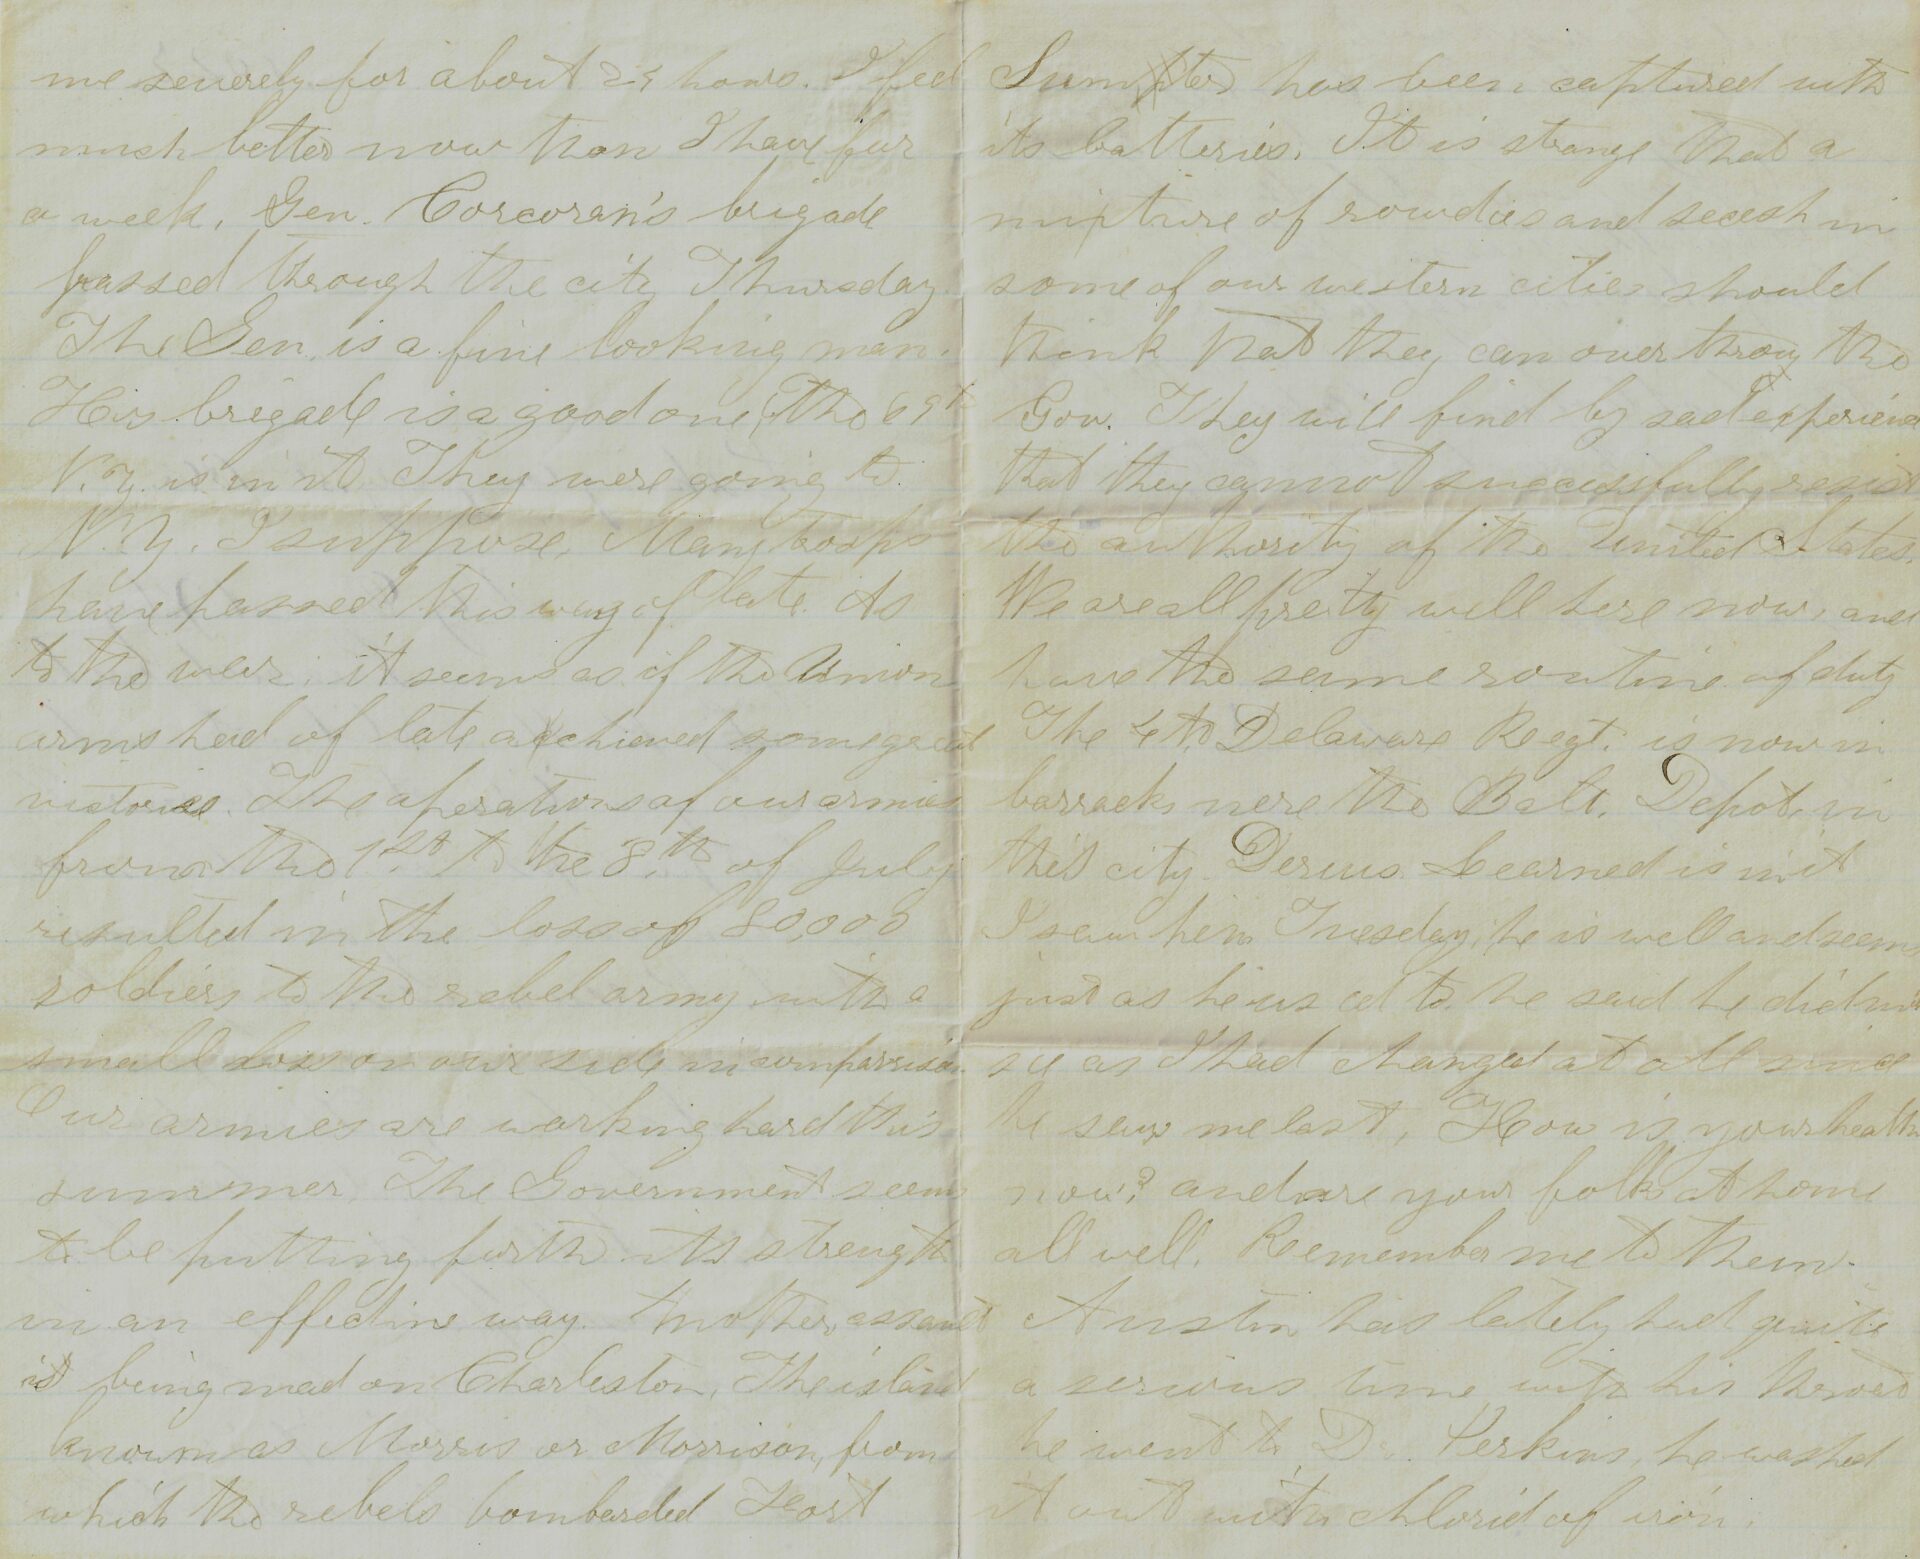 me severely for about 24 hours. I feel
much better now than I have for
a week. Gen. Corcoran's brigade
passed through the city Thursday
The Gen. is a fine looking man.
His brigade is a good one, the 69th
N.Y. is in it. They were going to
N.Y. I suppose. Many troops
have passed this way of late. As
to the war; it seems as if the Union
arms had of late acchieved some great
victories. The operations of our armies
from the 1st. to the 8.th of July
resulted in the loss of 80,000
soldiers to the rebel army with a
small loss on our side in comparrison.
Our armies are working hard this
summer. The Government seems
to be putting forth its strength
in an effective way. Another assault
is being mad on Charleston. The island
known as Morris or Morrison, from
which the rebels bombarded Fort
Sumpter has been captured with
its batteries. It is strange that a
mixture of rowdies and secesh in
some of our western cities should
think that they can over throw the
Gov. They will find by sad experience
that they cannot successfully resist
the authority of the United States.
We are all pretty well here now, and
have the same routine of duty
The 4th Delaware Regt. is now in
barracks nere the Balt. Depot. in
this city. Derius Learned is in it
I saw him Tuesday, he is well and seems
just as he us ed to. he said he did not
se as I had changed at all since
he saw me last. How is your health
now? and are your folks at home
all well. Remember me to them.
Austin has lately had quite
a serious time with his throat
he went to Dr. Perkins, he washed
it out with chlorid of iron.